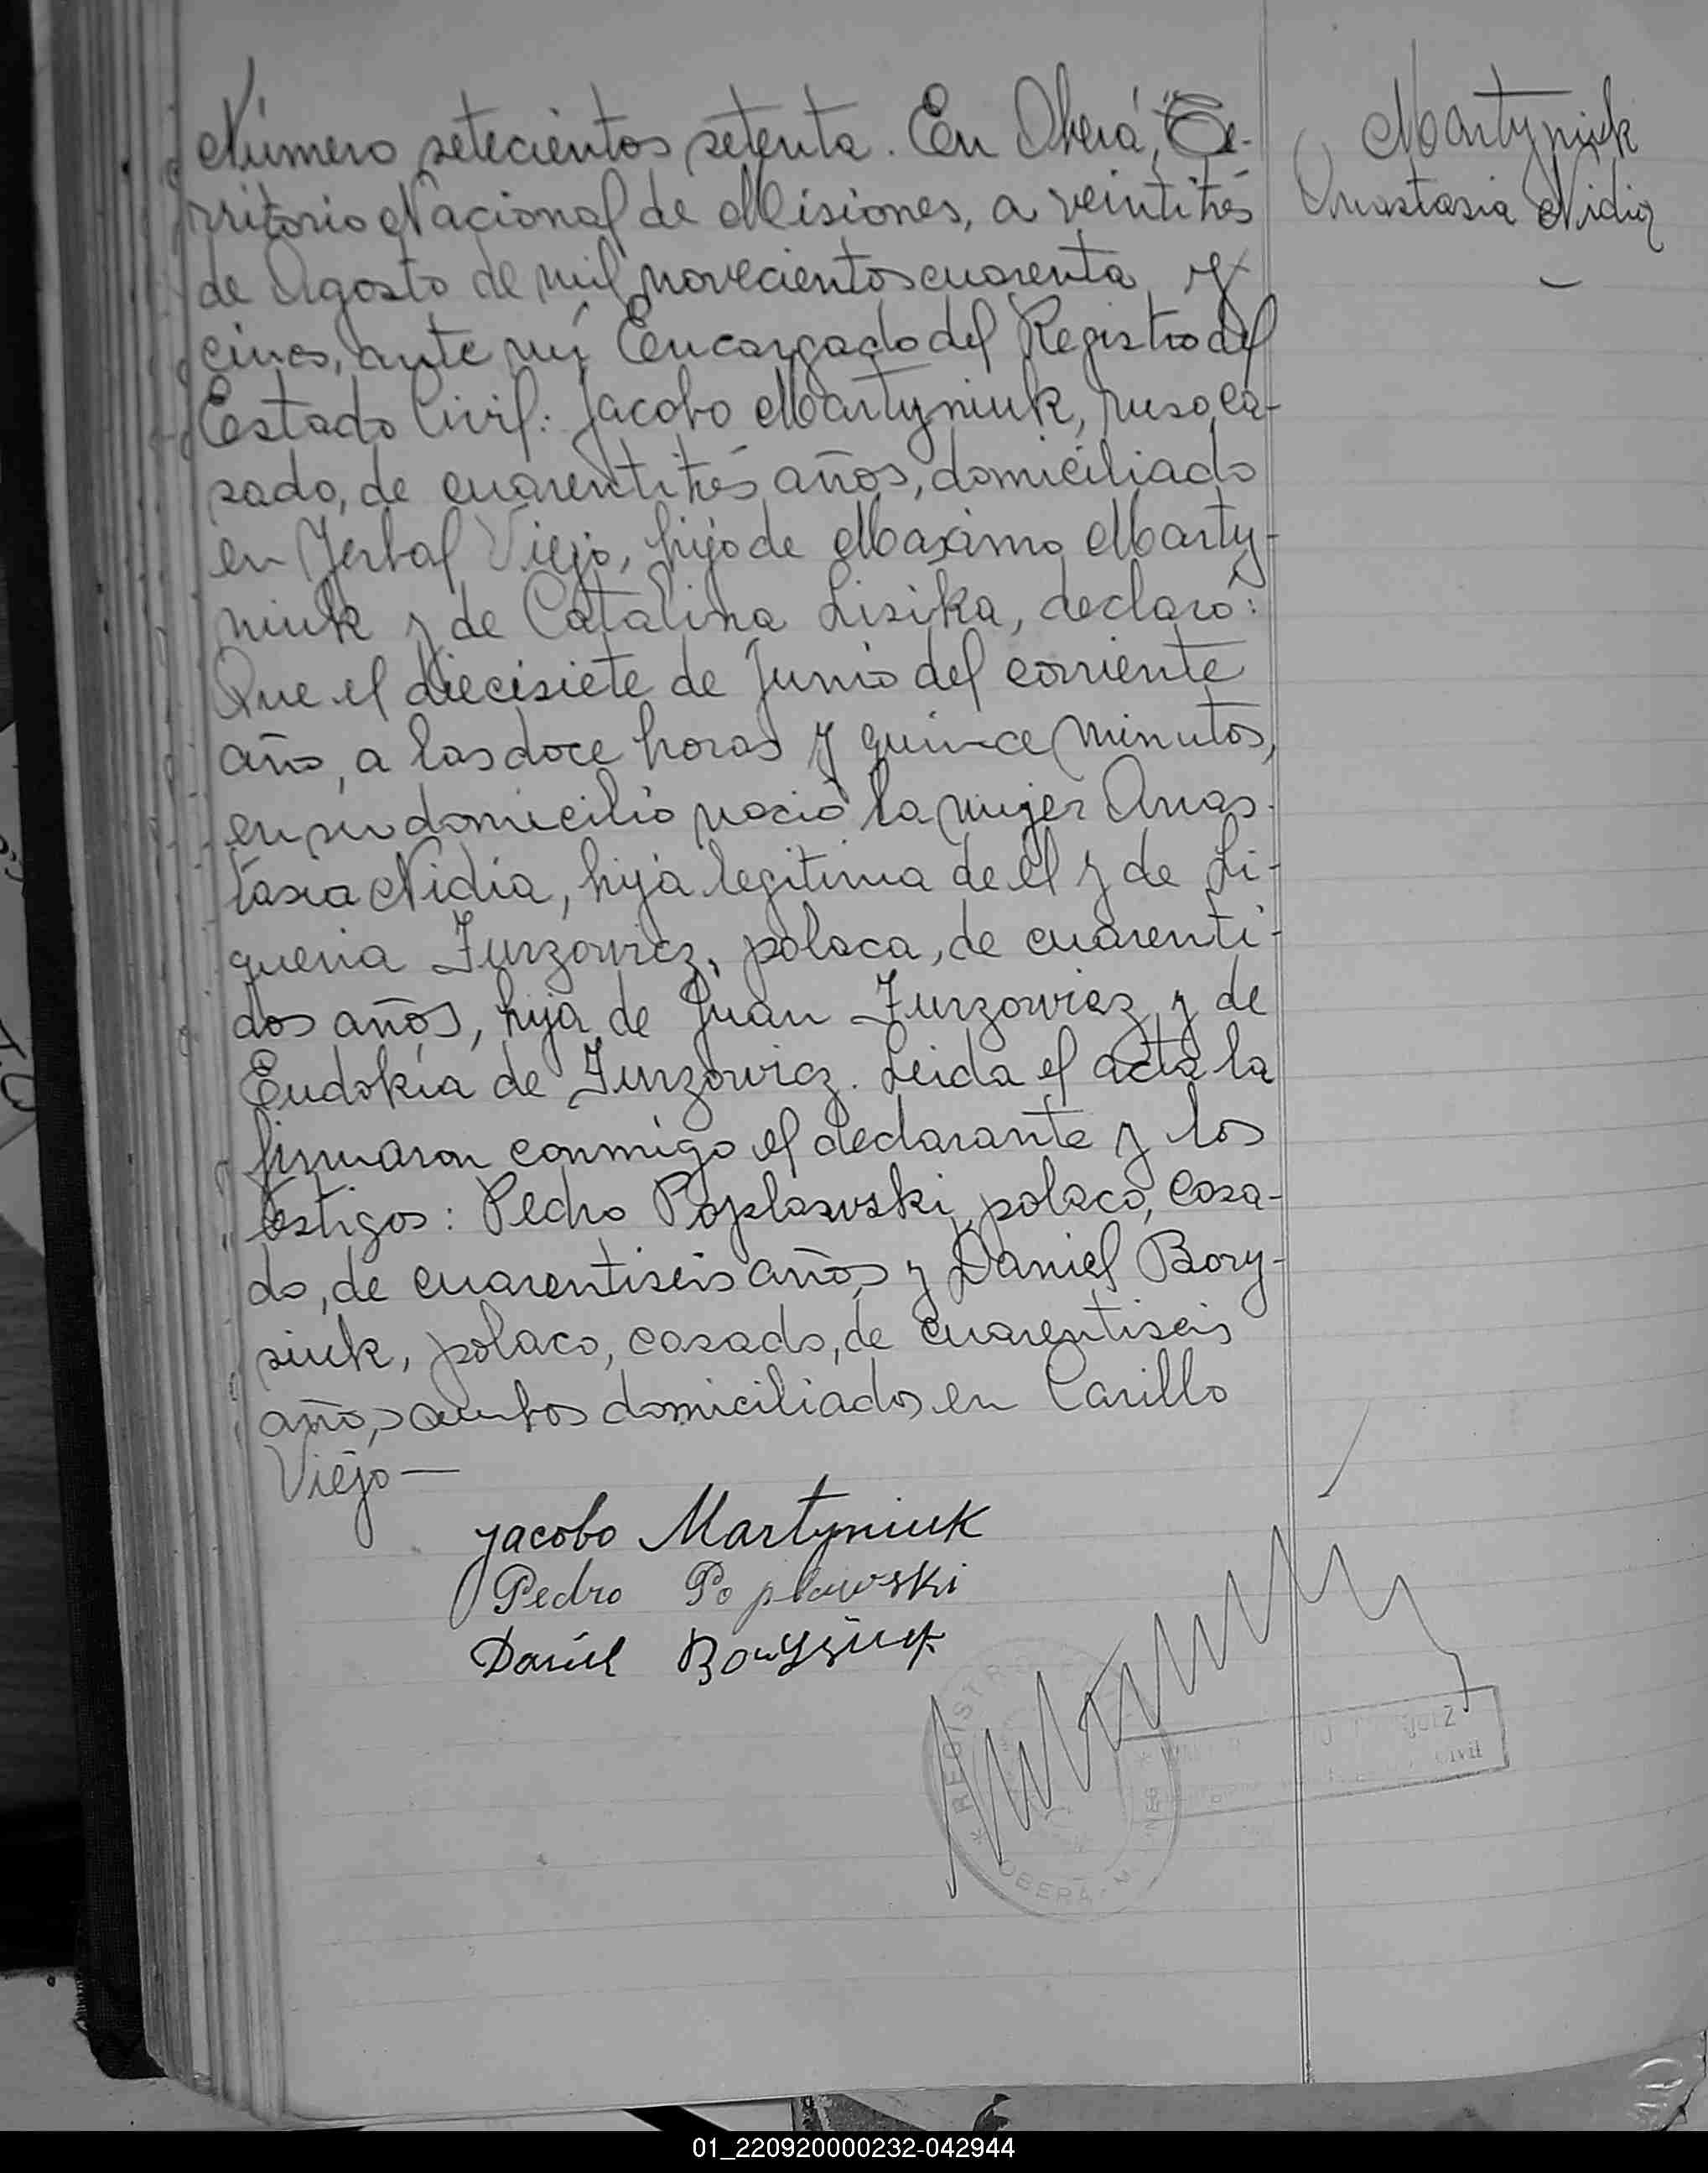 Número setecientos setenta. En Oberá, Te-
rritorio Nacional de Misiones, a veintitrés
de Agosto de mil novecientos cuarenta y
cinco, ante mí Encargado del Registro del
Estado Civil: Jacobo Martyniuk, ruso, ca-
sado, de cuarentitrés años, domiciliado
en Yerbal Viejo, hijo de Maximo Marty-
niuk y de Catalina Lisika, declaró:
Que el diecisiete de Junio del corriente
año, a las doce horas y quince minutos,
en su domicilio nació la mujer Anas-
tasia Nidia, hija legitima de el y de Li-
queria Jurzowicz, polaca, de cuarenti-
dos años, hija de Juan Jurzowicz y de
Eudokia de Jurzowicz. Leida el acta la
firmaron conmigo el declarante y los
testigos: Pedro Poplawski, polaco, casa-
do, de cuarentiseis años y Daniel Bory-
siuk, polaco, casado, de cuarentiseis
años, ambos domiciliados en Carillo
Viejo —
Martyniuk
Anastasia Nidia
Jacobo Martyniuk
Pedro Poplawski
Daniel
REGISTR
OBERÁ - M
Civil
01_220920000232-042944